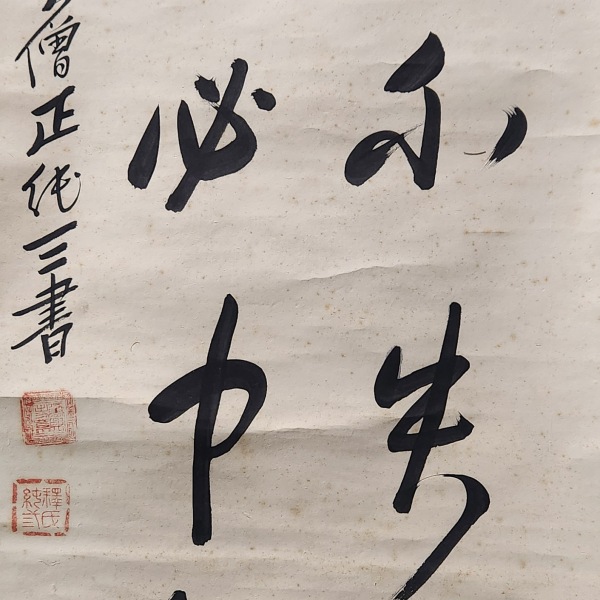 不失
必中
僧正純三書
釋氏
純弎